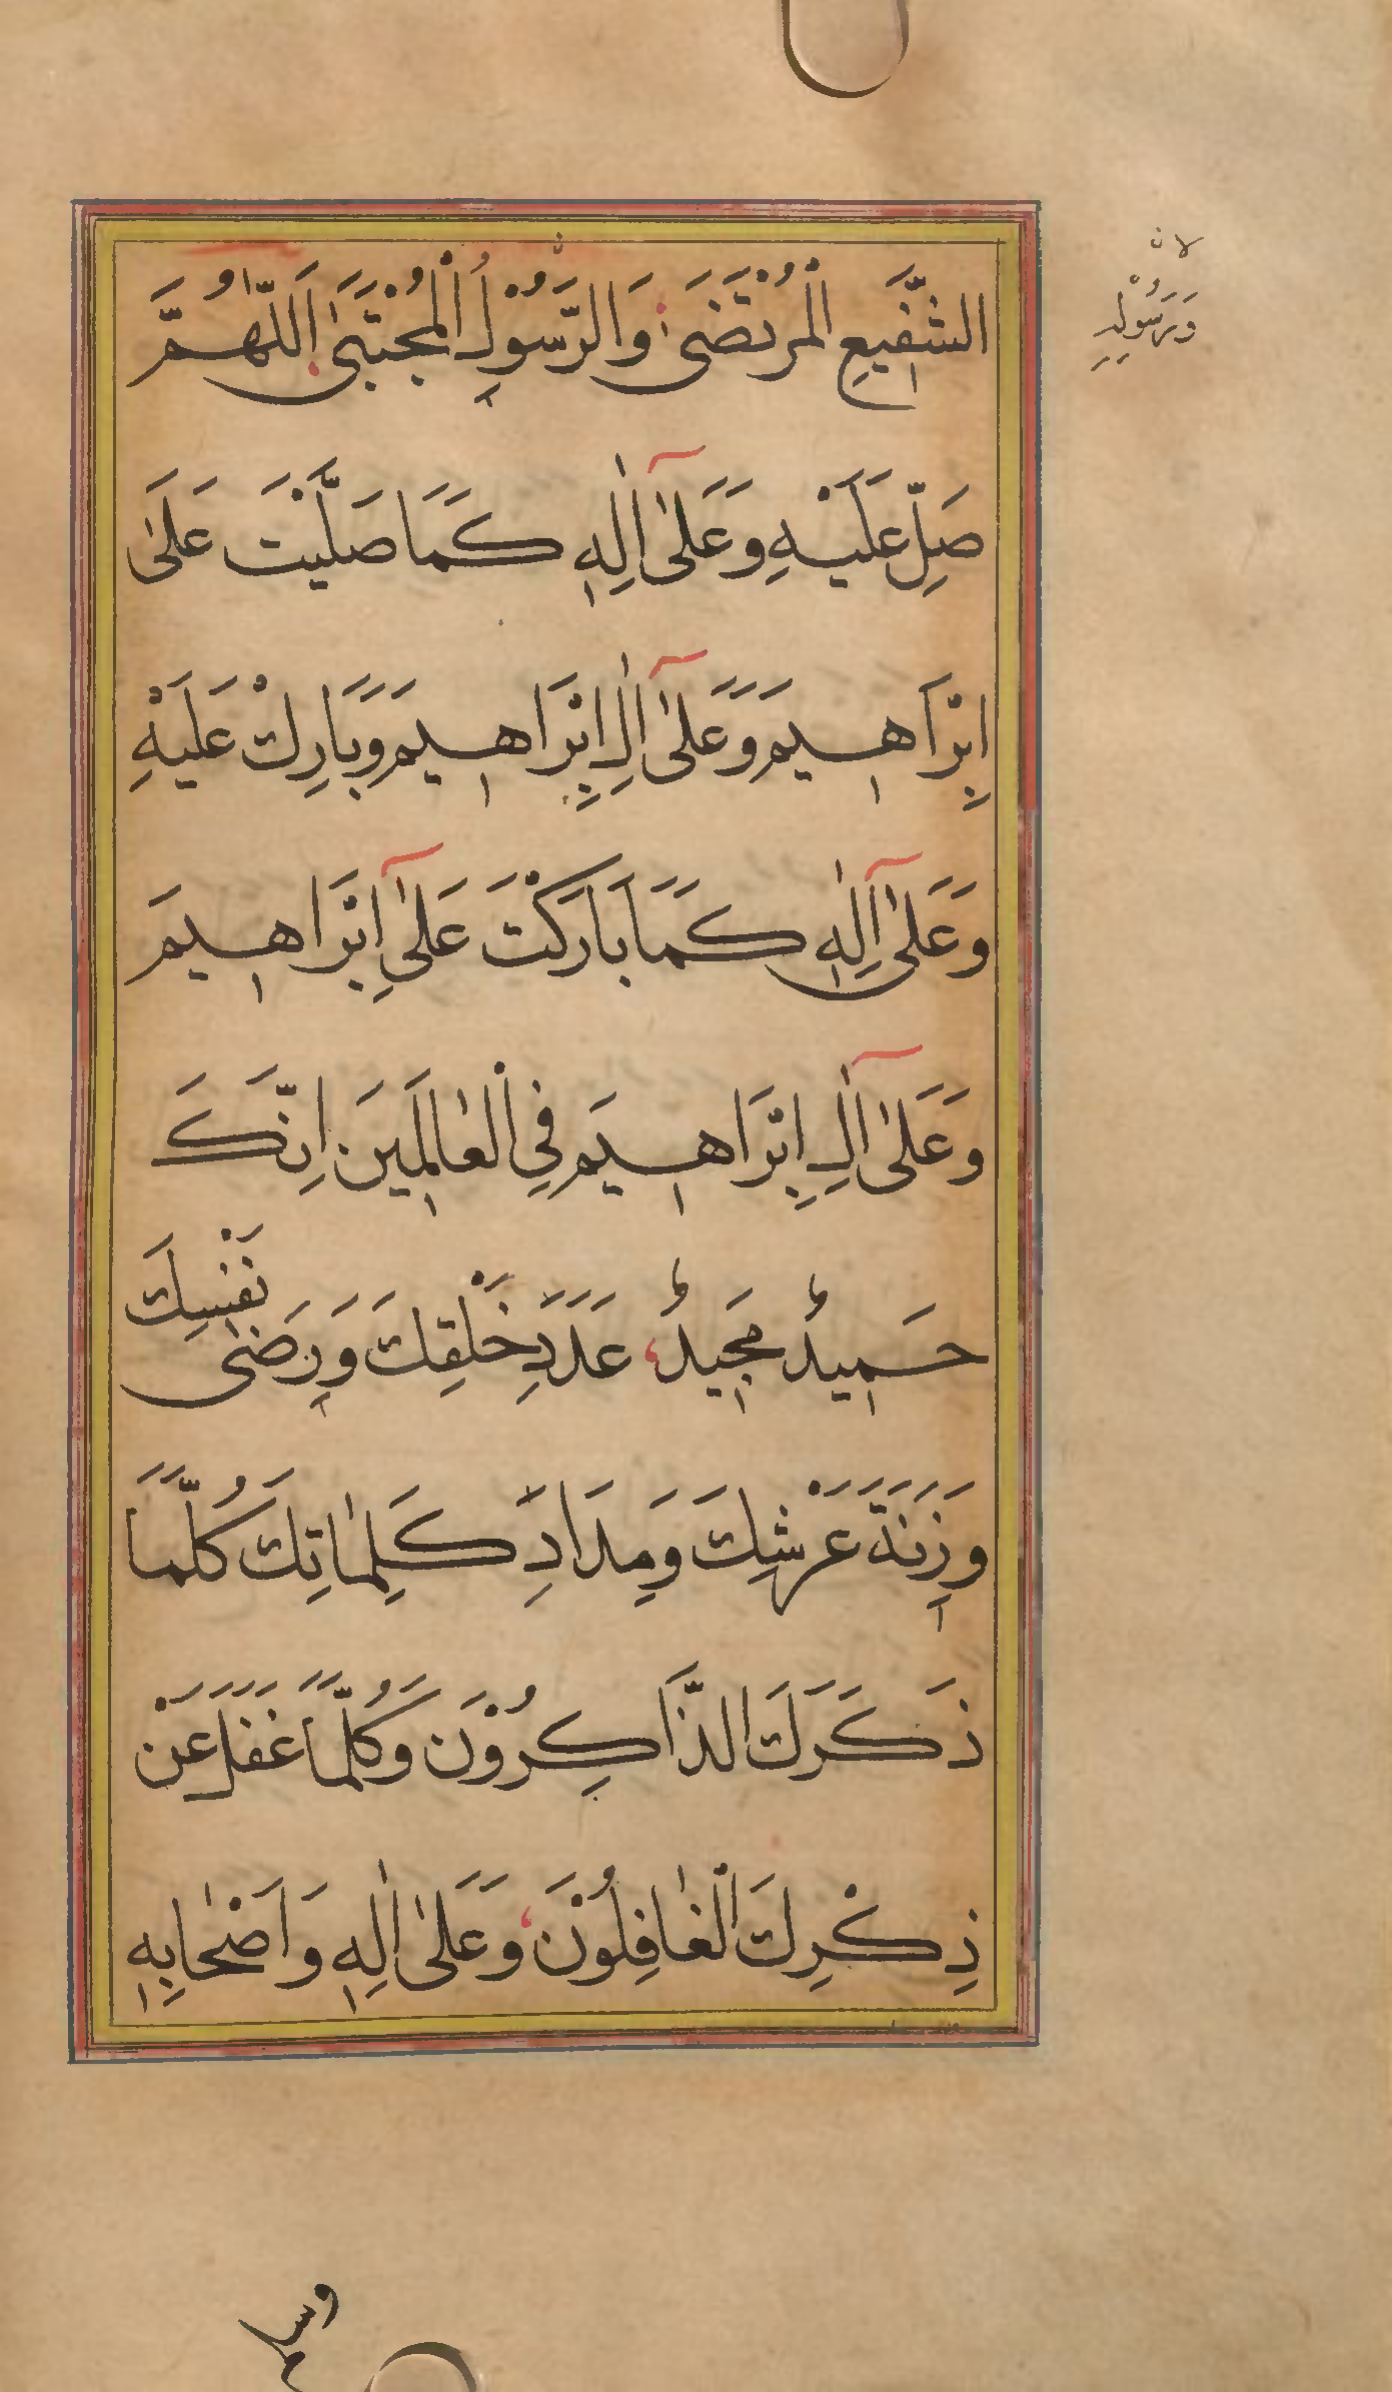 الشَّفِيعِ الْمُرْتَضَى وَالرَّسُوْلِ الْمُجْتَبَىٰ اَللّٰهُمَّ
صَلِّ عَلَيْهِ وَعَلىٰٓ اٰلِهٖ كَمَا صَلَّيْتَ عَلىٰ
اِبْرَاهِيمَ وَعَلىٰٓ اٰلِ اِبْرَاهِيمَ وَبَارِكْ عَلَيْهِ
وَعَلىٰٓ اٰلِهٖ كَمَا بَارَكْتَ عَلىٰٓ اِبْرَاهِيمَ
وَعَلىٰٓ اٰلِ اِبْرَاهِيمَ فِي الْعٰالَمِينَ اِنَّكَ
حَمِيدٌ مَجِيدٌ عَدَدَ خَلْقِكَ وَرِضَى نَفْسِكَ
وَزِنَةَ عَرْشِكَ وَمِدَادَ كَلِمٰاتِكَ كُلَّمَا
ذَكَرَكَ الذَّاكِرُوْنَ وَكُلَّمَا غَفَلَ عَنْ
ذِكْرِكَ الْغٰافِلُوْنَ وَعَلىٰ اٰلِهٖ وَاَصْحٰابِهٖ
وَرَسُوْلِهِ
وسلم